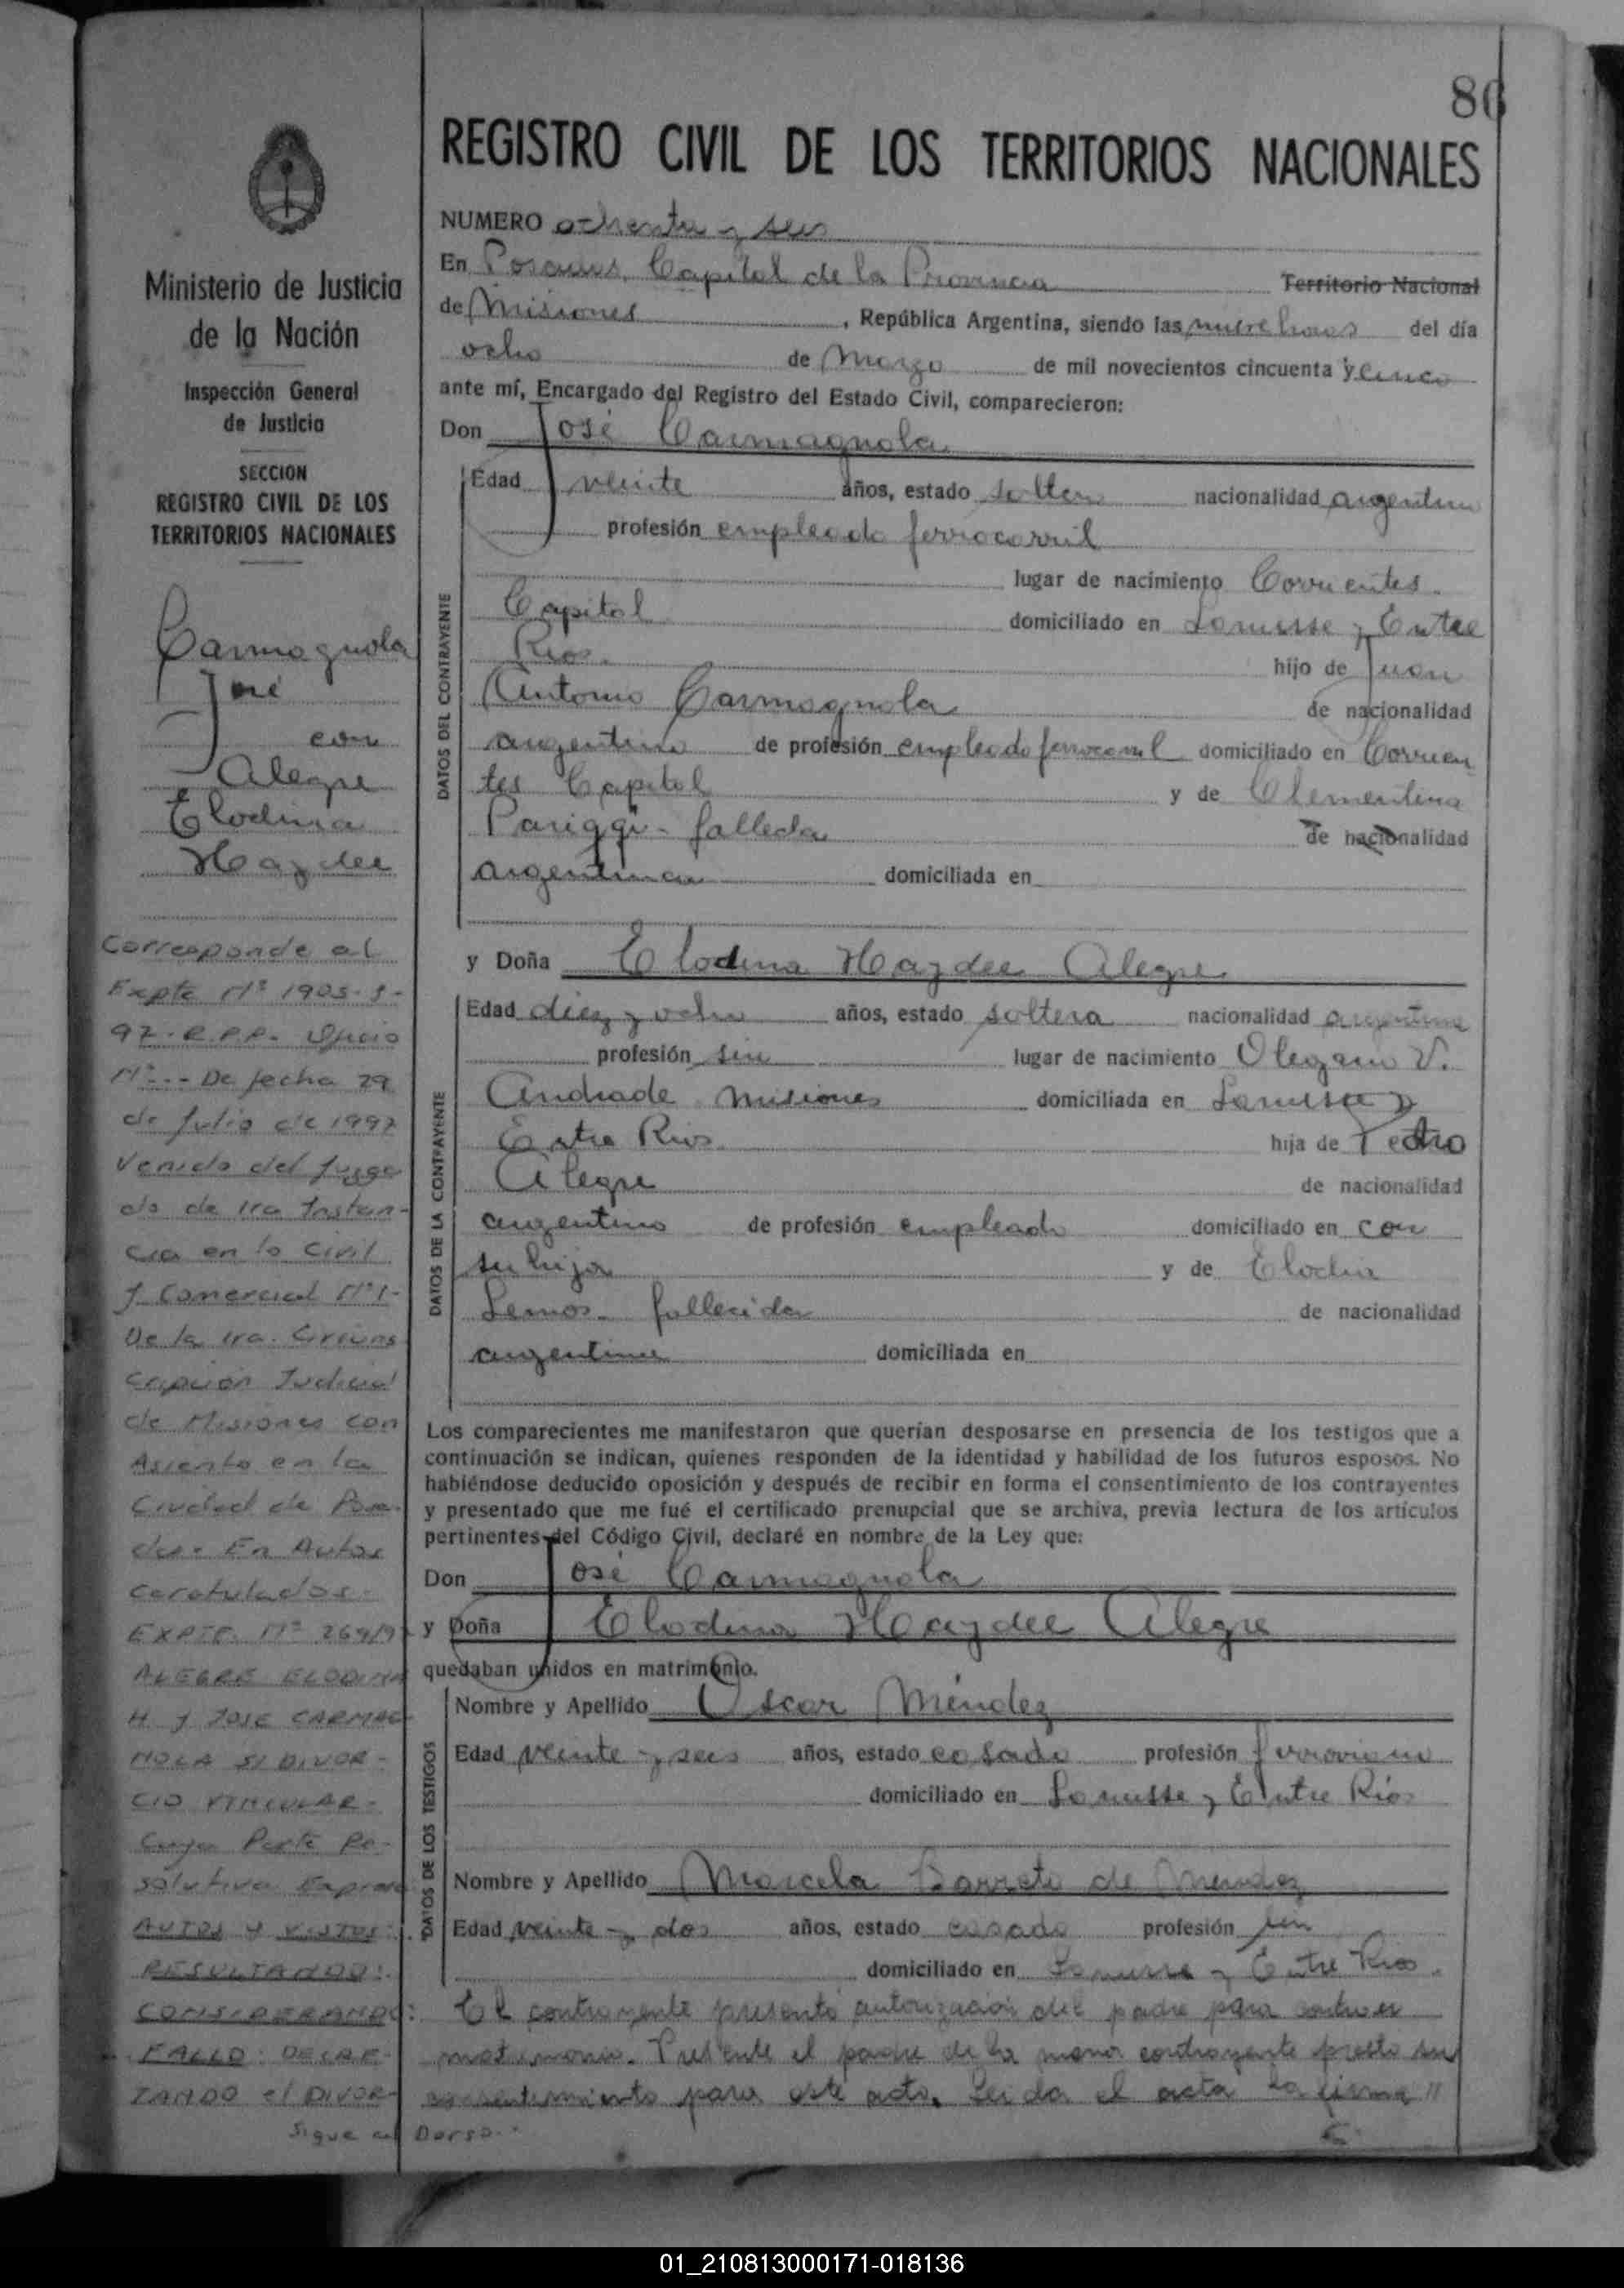 86
REGISTRO CIVIL DE LOS TERRITORIOS NACIONALES
Ministerio de Justicia
de la Nación
Inspección General
de Justicia
SECCION
REGISTRO CIVIL DE LOS
TERRITORIOS NACIONALES
Carmagnola
José
con
Alegre
Elodina
Haydee
Corresponde al
Expte Nº 1905-J-
97-R.P.P. Oficio
Nº--- De fecha 29
de Julio de 1997
Venido del Juzga
do de 1ra Instan-
cia en lo Civil
y Comercial Nº1-
De la 1ra. Circuns
cripción Judicial
de Misiones con
Asiento en la
Ciudad de Posa-
das. En Autos
Caratulados-
EXPTE. Nº 269/9
ALEGRE ELODINA
H. y JOSE CARMAG-
NOLA S/ DIVOR-
CIO VINCULAR-
Cuya Parte Re-
solutiva Expresa
AUTOS Y VISTOS:
RESULTANDO:
CONSIDERANDO:
FALLO: DECRE-
TANDO el DIVOR-
Sigue al Dorso..
NUMERO ochenta y seis
En Posadas, Capital de la Provincia Territorio Nacional
de Misiones, República Argentina, siendo las nueve horas del día
ocho de Marzo de mil novecientos cincuenta y cinco
ante mí, Encargado del Registro del Estado Civil, comparecieron:
Don José Carmagnola
DATOS DEL CONTRAYENTE
Edad veinte años, estado soltero nacionalidad argentino
profesión empleado ferrocarril
lugar de nacimiento Corrientes.
Capital domiciliado en Lanusse y Entre
Rios. hijo de Juan
Antonio Carmagnola de nacionalidad
argentino de profesión empleado ferrocarril domiciliado en Corrien
tes Capital y de Clementina
Pariggi - falleda de nacionalidad
argentina domiciliada en
y Doña Elodina Haydee Alegre
DATOS DE LA CONTRAYENTE
Edad diez y ocho años, estado soltera nacionalidad argentina
profesión sin lugar de nacimiento Olegario V.
Andrade Misiones domiciliada en Lanusse y
Entre Rios hija de Pedro
Alegre de nacionalidad
argentino de profesión empleado domiciliado en con
su hija y de Elodia
Lemos - fallecida de nacionalidad
argentina domiciliada en
Los comparecientes me manifestaron que querían desposarse en presencia de los testigos que a
continuación se indican, quienes responden de la identidad y habilidad de los futuros esposos. No
habiéndose deducido oposición y después de recibir en forma el consentimiento de los contrayentes
y presentado que me fué el certificado prenupcial que se archiva, previa lectura de los artículos
pertinentes del Código Civil, declaré en nombre de la Ley que:
Don José Carmagnola
y Doña Elodina Haydee Alegre
quedaban unidos en matrimonio.
DATOS DE LOS TESTIGOS
Nombre y Apellido Oscar Méndez
Edad veinte y seis años, estado casado profesión ferroviario
domiciliado en Lanusse y Entre Ríos
Nombre y Apellido Marcela Barreto de Mendez
Edad veinte y dos años, estado casada profesión sin
domiciliado en Lanusse y Entre Rios.
El contrayente presentó autorización del padre para contraer
matrimonio. Presente el padre de la menor contrayente prestó su
consentimiento para este acto. Leida el acta la firma"
01_210813000171-018136